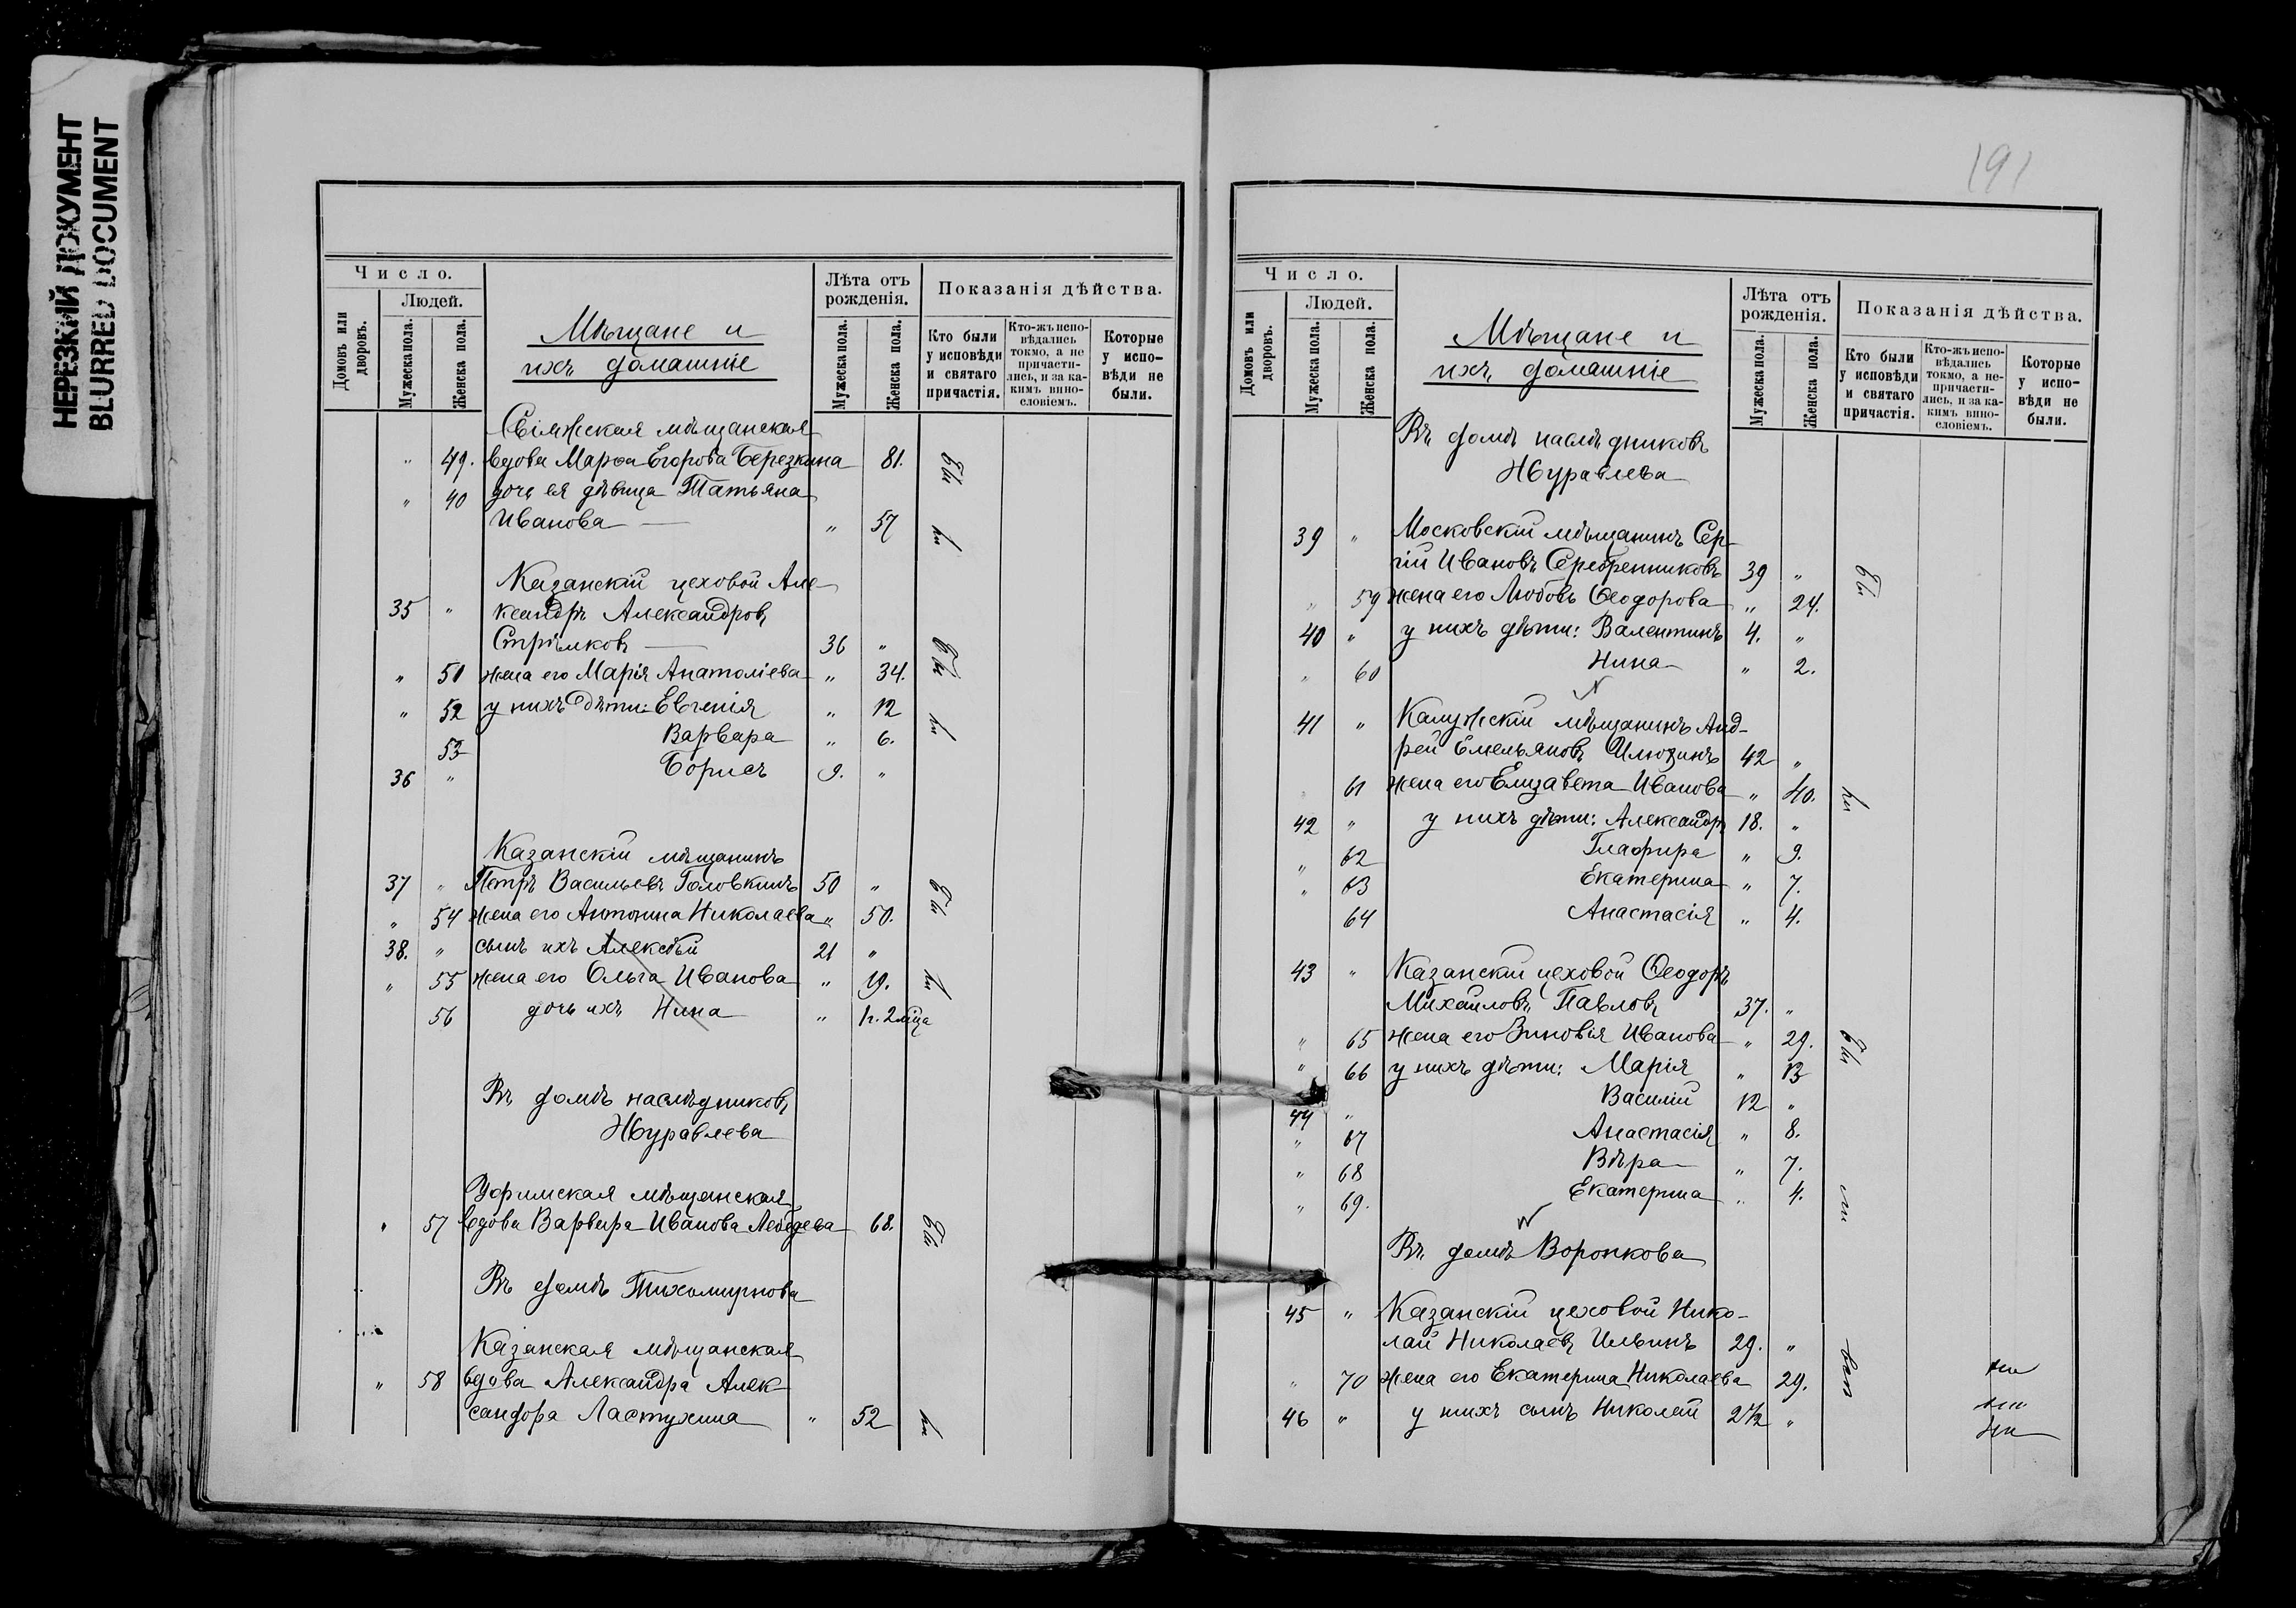 НЕРЕЗКИЙ ДОКУМЕНТ
BLURRED DOCUMENT
Число.
Людей.
Домовъ или дворовъ.
Мужеска пола.
Женска пола.
Мѣщане и
ихъ домашніе
Лѣта отъ рожденія.
Мужеска пола.
Женска пола.
Показанія дѣйства.
Кто были у исповѣди и святаго причастія.
Кто-жъ исповѣдались токмо, а не причастились, и за какимъ винословіемъ.
Которые у исповѣди не были.
Свіяжская мѣщанская
" 49. вдова Марѳа Егорова Березкина 81. был
" 40 дочь ея дѣвица Татьяна
Иванова — " 57
Казанскій цеховой Але-
35 " ксандръ Александровъ
Стрѣлковъ — 36 "
" 51 жена его Марія Анатоліева " 34.
" 52 у нихъ дѣти: Евгенія " 12
53 Варвара " 6.
36 " Борисъ 9. "
Казанскій мѣщанинъ
37 " Петръ Васильевъ Головкинъ 50 "
" 54 жена его Антонина Николаева " 50.
38. " сынъ ихъ Алексѣй 21 "
" 55 жена его Ольга Иванова " 19.
56 дочь ихъ Нина " н. 2 мѣца
Въ домѣ наслѣдниковъ
Журавлева
Уфимская мѣщанская
" 57 вдова Варвара Иванова Лебедева 68.
Въ домѣ Тихомирнова
Казанская мѣщанская
" 58 вдова Александра Алек-
сандрова Ластухина " 52
191
Число.
Людей.
Домовъ или дворовъ.
Мужеска пола.
Женска пола.
Мѣщане и
ихъ домашніе
Лѣта отъ рожденія.
Мужеска пола.
Женска пола.
Показанія дѣйства.
Кто были у исповѣди и святаго причастія.
Кто-жъ исповѣдались токмо, а не-причастились, и за какимъ винословіемъ.
Которые у исповѣди не были.
Въ домѣ наслѣдниковъ
Журавлева
39 " Московскій мѣщанинъ Сер-
гій Ивановъ Серебренниковъ 39 "
" 59 жена его Любовь Ѳеодорова " 24.
40 " у нихъ дѣти: Валентинъ 4. "
" 60 Нина " 2.
41 " Калужскій мѣщанинъ Анд-
рей Емельяновъ Илюзинъ 42 "
61 жена его Елизавета Иванова " 40.
42 " у нихъ дѣти: Александръ 18. "
" 62 Глафира " 9.
" 63 Екатерина " 7.
64 Анастасія " 4.
43 " Казанскій цеховой Ѳеодоръ
Михаиловъ Павловъ 37. "
" 65 жена его Зиновія Иванова " 29.
" 66 у нихъ дѣти: Марія " 13
44 " Василій 12 "
" 67 Анастасія " 8.
" 68 Вѣра " 7.
" 69. Екатерина " 4.
Въ домѣ Воронкова
45 " Казанскій цеховой Нико-
лай Николаевъ Ильинъ 29. "
" 70 жена его Екатерина Николаева 29.
46 " у нихъ сынъ Николай 2½ "